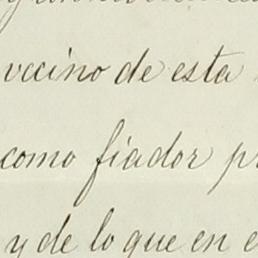 vecino de esta
como fiador
y de lo que en